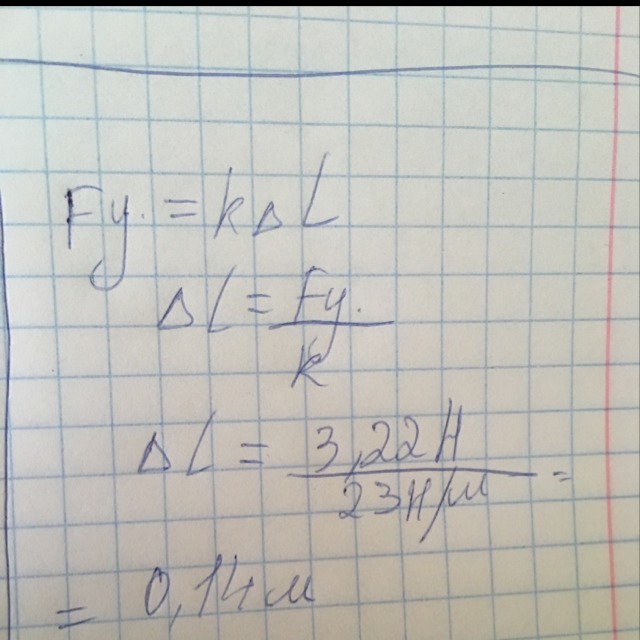 Fy. = kΔL
ΔL = Fy. / k
ΔL = 3,22Н / 23Н/м =
= 0,14м